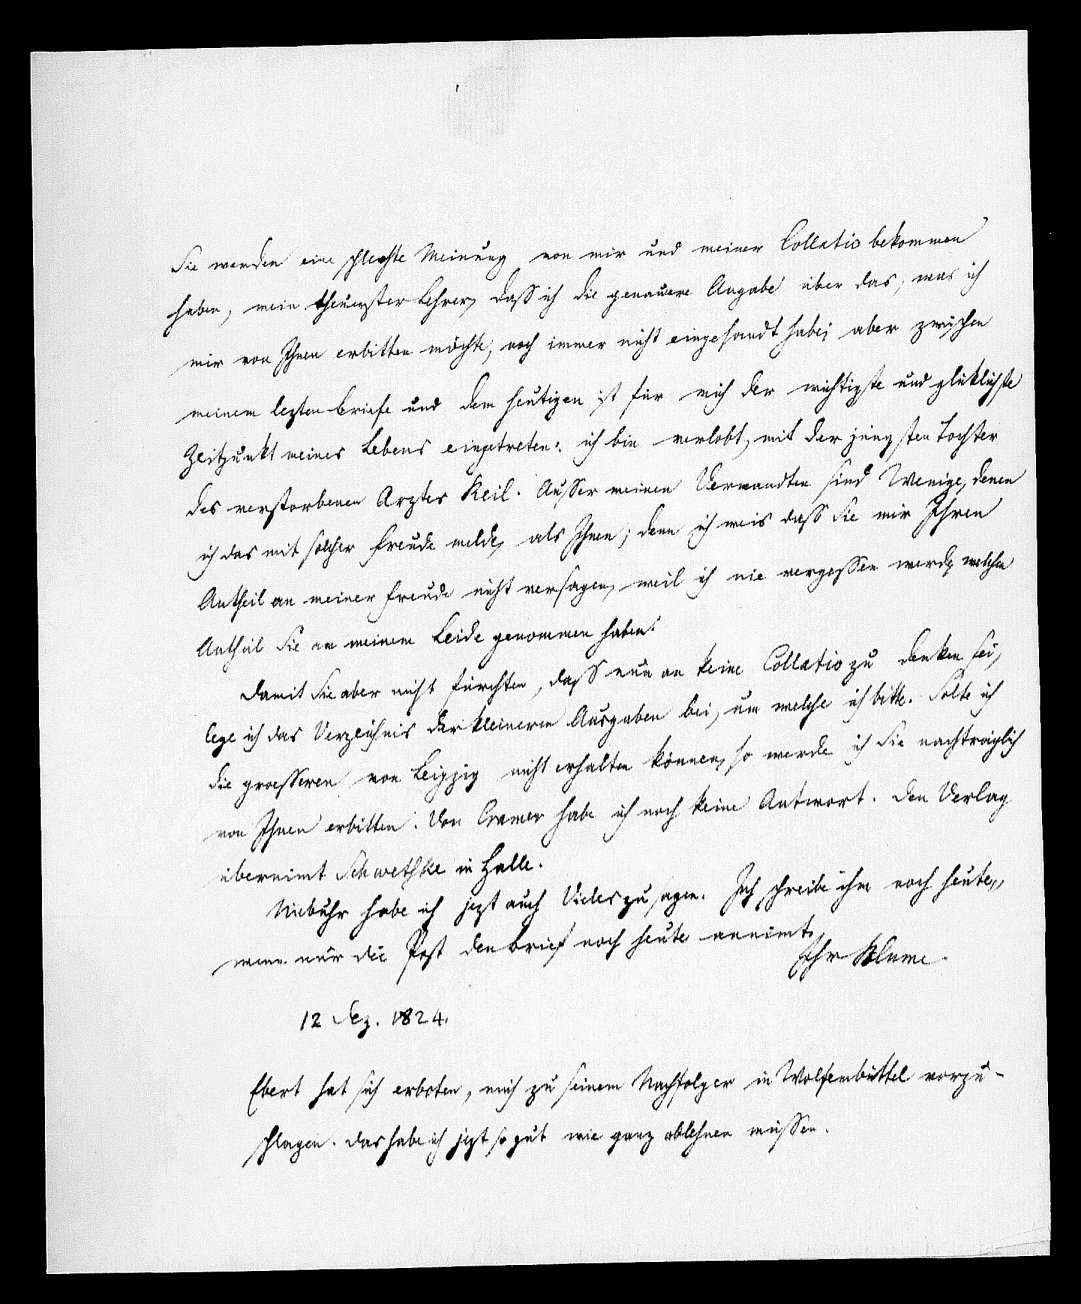 Sie werden eine schlechte Meinung von mir und meiner Collatio bekommen
haben, mein theuerster Lehrer, dass ich die genauere Angabe über das, was ich
mir von Ihnen erbitten möchte, noch immer nicht eingesandt habe; aber zwischen
meinem lezten Briefe und dem heutigen ist für mich der wichtigste und glüklichste
Zeitpunkt meines Lebens eingetreten: ich bin verlobt, mit der jüngsten Tochter
des verstorbenen Arztes Reil. Ausser meinen Verwandten sind Wenige, denen
ich das mit solcher Freude melde, als Ihnen; denn ich weis dass Sie mir Ihren
Antheil an meiner Freude nicht versagen, weil ich nie vergessen werde, welchen
Antheil Sie an meinem Leide genommen haben.
Damit Sie aber nicht fürchten, dass nun an keine Collatio zu denken sei,
lege ich das Verzeichnis der kleineren Ausgaben bei, um welche ich bitte. Solte ich
die groesseren von Leipzig nicht erhalten können, so werde ich Sie nachträglich
von Ihnen erbitten. Von Cramer habe ich noch keine Antwort. Den Verlag
übernimt Schwetschke in Halle.
Niebuhr habe ich jezt auch Vieles zu sagen. Ich schreibe ihm noch heute,
wenn nur die Post den Brief noch heute annimt.
Ihr Blume.
12 Dez. 1824.
Ebert hat sich erboten, mich zu seinem Nachfolger in Wolfenbüttel vorzu-
schlagen. Das habe ich jezt so gut wie ganz ablehnen müssen.